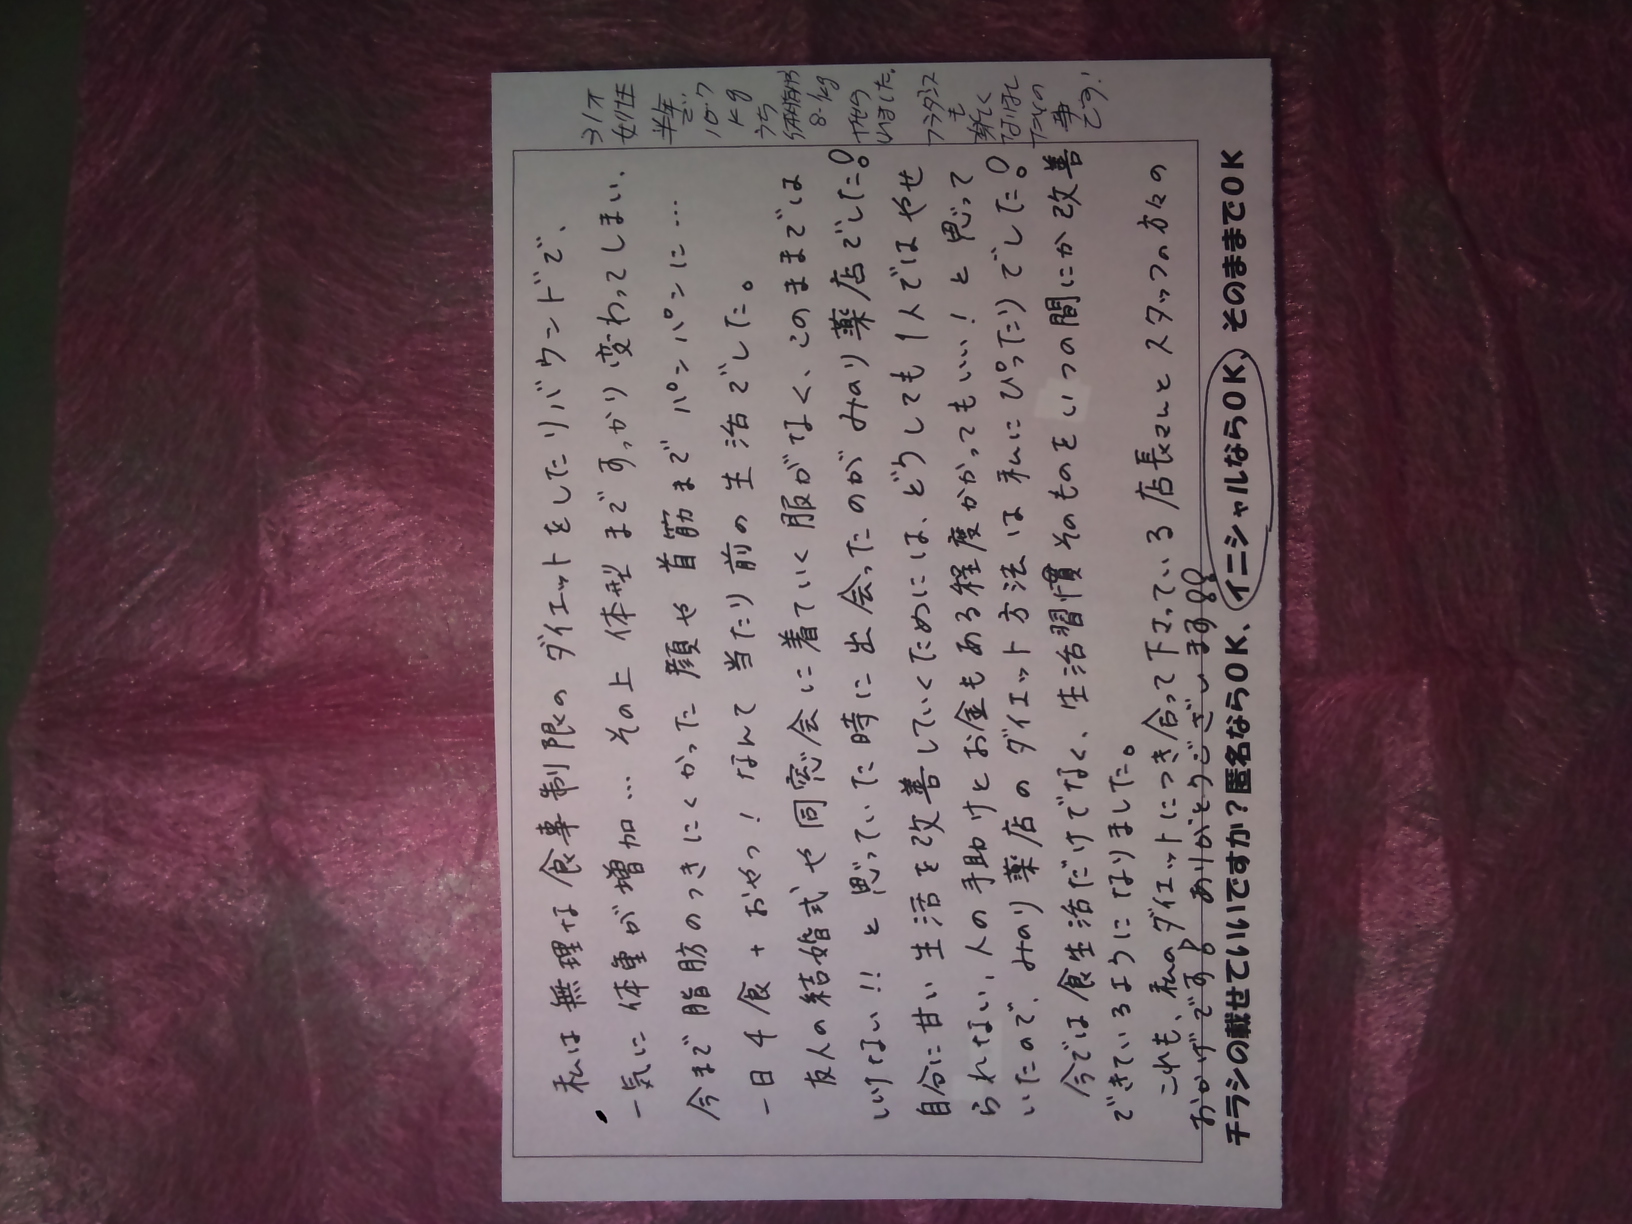 私は無理な食事制限のダイエットをしたリバウンドで、
一気に体重が増加… その上 体型まですっかり変わってしまい、
今まで脂肪のつきにくかった顔や首筋までパンパンに…
一日4食+おやつ! なんて当たり前の生活でした。
友人の結婚式や同窓会に着ていく服がなく、このままでは
いけない!!と思っていた時に出会ったのがみのり薬店でした。
自分に甘い生活を改善していくためには、どうしても1人ではやせ
られない、人の手助けとお金もある程度かかってもいい!と思って
いたので、みのり薬店のダイエット方法は私にぴったりでした。
今では食生活だけでなく、生活習慣そのものをいつの間にか改善
できているようになりました。
これも、私のダイエットにつき合って下さっている店長さんとスタッフの方々の
おかげです。ありがとうございます。
チラシの載せていいですか?匿名ならOK、イニシャルならOK、そのままでOK
31才
女性
半年
で
10.7
kg
うち
体脂肪
8.1kg
いました。
も
なし
との
事
です!